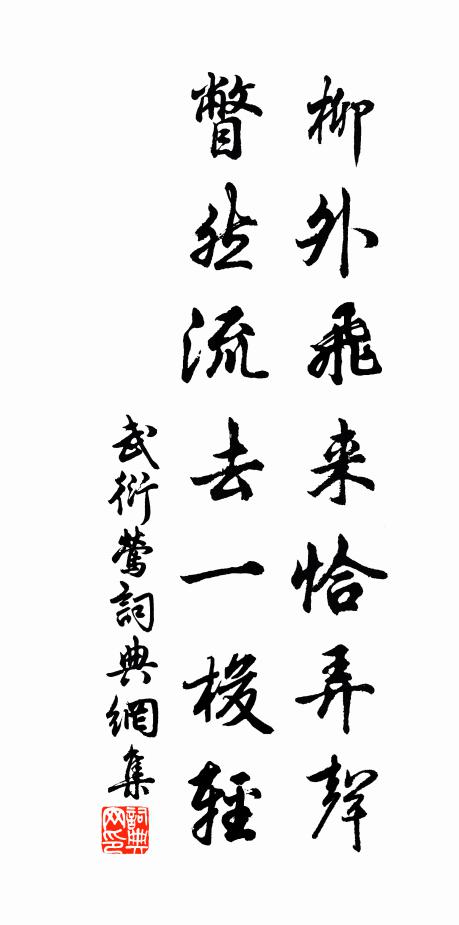 柳外飛来恰弄聲
瞥然流去一梭輕
武衍鶯詞典網集
詞典网印